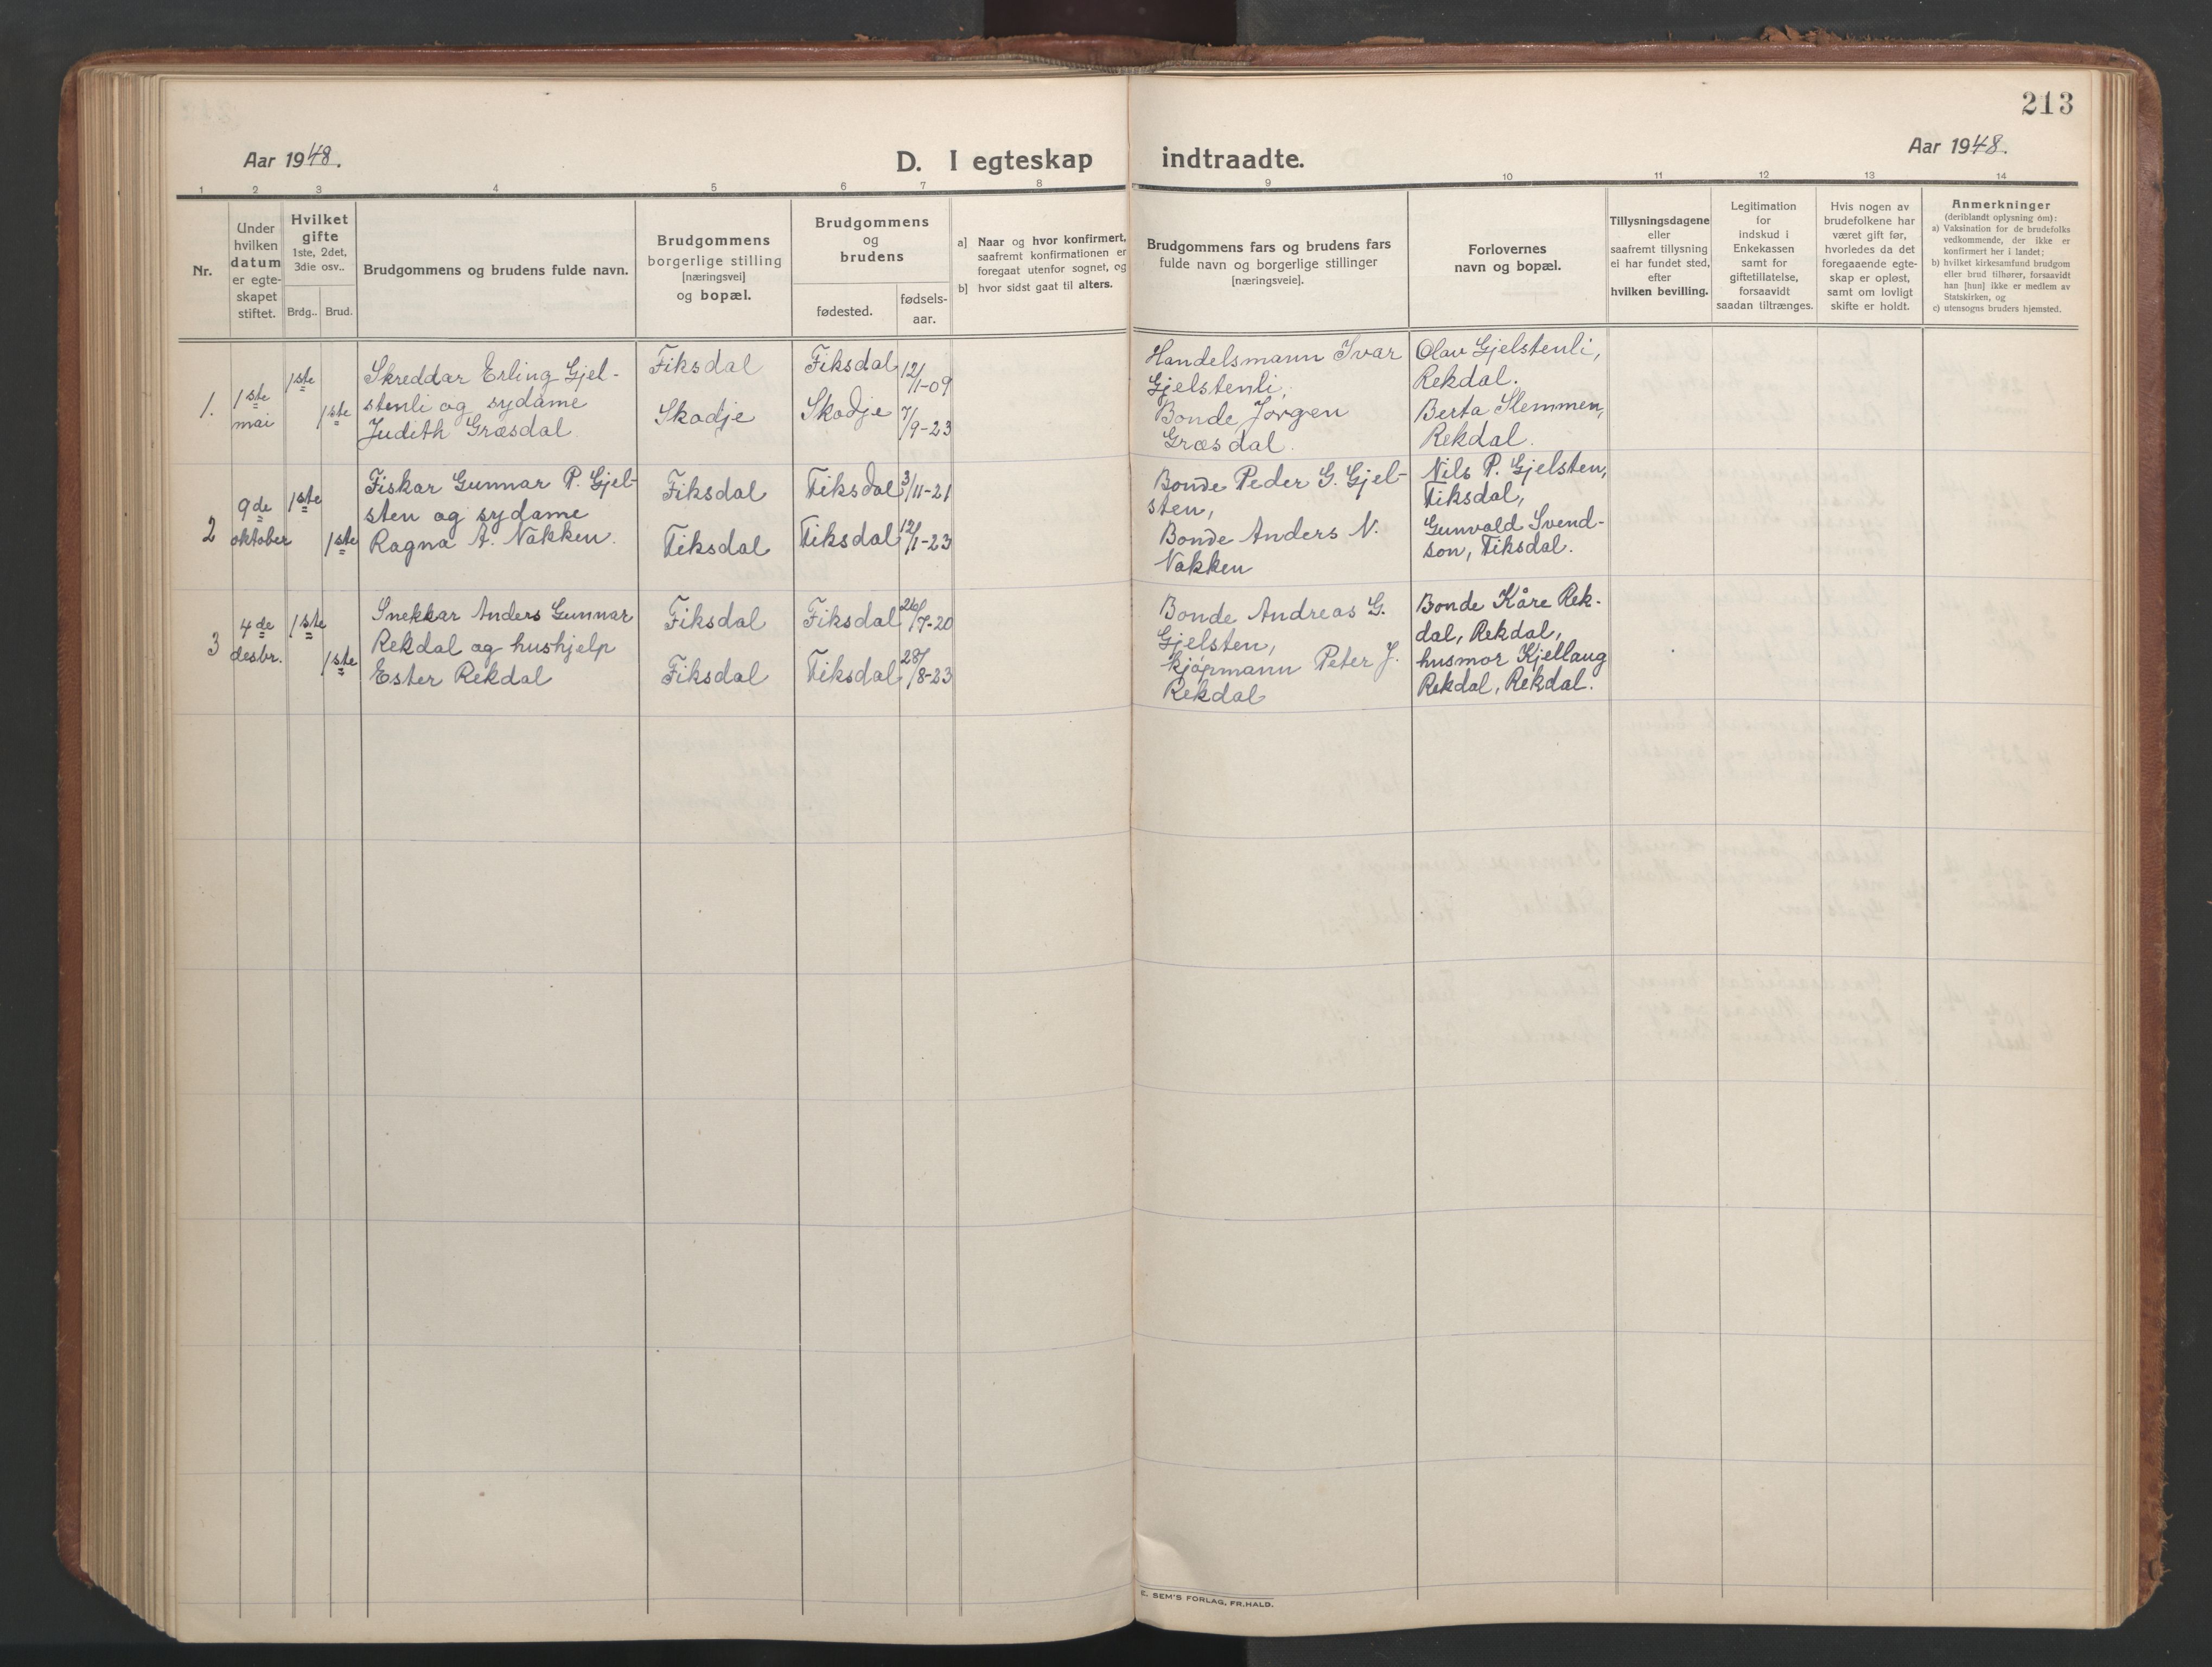 213
Aar 1948.
D. I egteskap indtraadte.
Aar 1948.
1 2 3 4 5 6 7 8 9 10 11 12 13 14
Nr.
Under
hvilken
datum
er egte-
skapet
stiftet.
Hvilket
gifte
1ste, 2det,
3die osv..
Brdg.. Brud.
Brudgommens og brudens fulde navn.
Brudgommens
borgerlige stilling
[næringsvei]
og bopæl.
Brudgommens
og
brudens
fødested.
fødsels-
aar.
a] Naar og hvor konfirmert,
saafremt konfirmationen er
foregaat utenfor sognet, og
b] hvor sidst gaat til alters.
Brudgommens fars og brudens fars
fulde navn og borgerlige stillinger
[næringsveie].
Forlovernes
navn og bopæl.
Tillysningsdagene
eller
saafremt tillysning
ei har fundet sted,
efter
hvilken bevilling.
Legitimation
for
indskud i
Enkekassen
samt for
giftetillatelse,
forsaavidt
saadan tiltrænges.
Hvis nogen av
brudefolkene har
været gift før,
hvorledes da det
foregaaende egte-
skap er opløst,
samt om lovligt
skifte er holdt.
Anmerkninger
(deriblandt oplysning om):
a) Vaksination for de brudefolks
vedkommende, der ikke er
konfirmert her i landet;
b) hvilket kirkesamfund brudgom
eller brud tilhører, forsaavidt
han [hun] ikke er medlem av
Statskirken, og
c) utensogns bruders hjemsted.
1.
1ste
mai
1ste
1ste
Skreddar Erling Gjel-
stenli og sydame
Judith Græsdal
Fiksdal
Skodje
Fiksdal
Skodje
12/1-09
7/9-23
Handelsmann Ivar
Gjelstenli,
Bonde Jørgen
Græsdal.
Olav Gjelstenli,
Rekdal.
Berta Slemmen,
Rekdal.
2
9de
oktober
1ste
1ste
Fiskar Gunnar P. Gjel-
sten og sydame
Ragna A. Nakken.
Fiksdal
Fiksdal
Fiksdal
Fiksdal
3/11-21
12/1-23
Bonde Peder G. Gjel-
sten,
Bonde Anders N.
Nakken
Nils P. Gjelsten,
Fiksdal,
Gunvald Svend-
son, Fiksdal.
3
4de
desbr.
1ste
1ste
Snekkar Anders Gunnar
Rekdal og hushjelp
Ester Rekdal
Fiksdal
Fiksdal
Fiksdal
Fiksdal
26/7-20
28/8-23
Bonde Andreas G.
Gjelsten,
kjøpmann Peter J.
Rekdal
Bonde Kåre Rek-
dal, Rekdal,
husmor Kjellaug
Rekdal, Rekdal.
E. SEM'S FORLAG, FR.HALD.